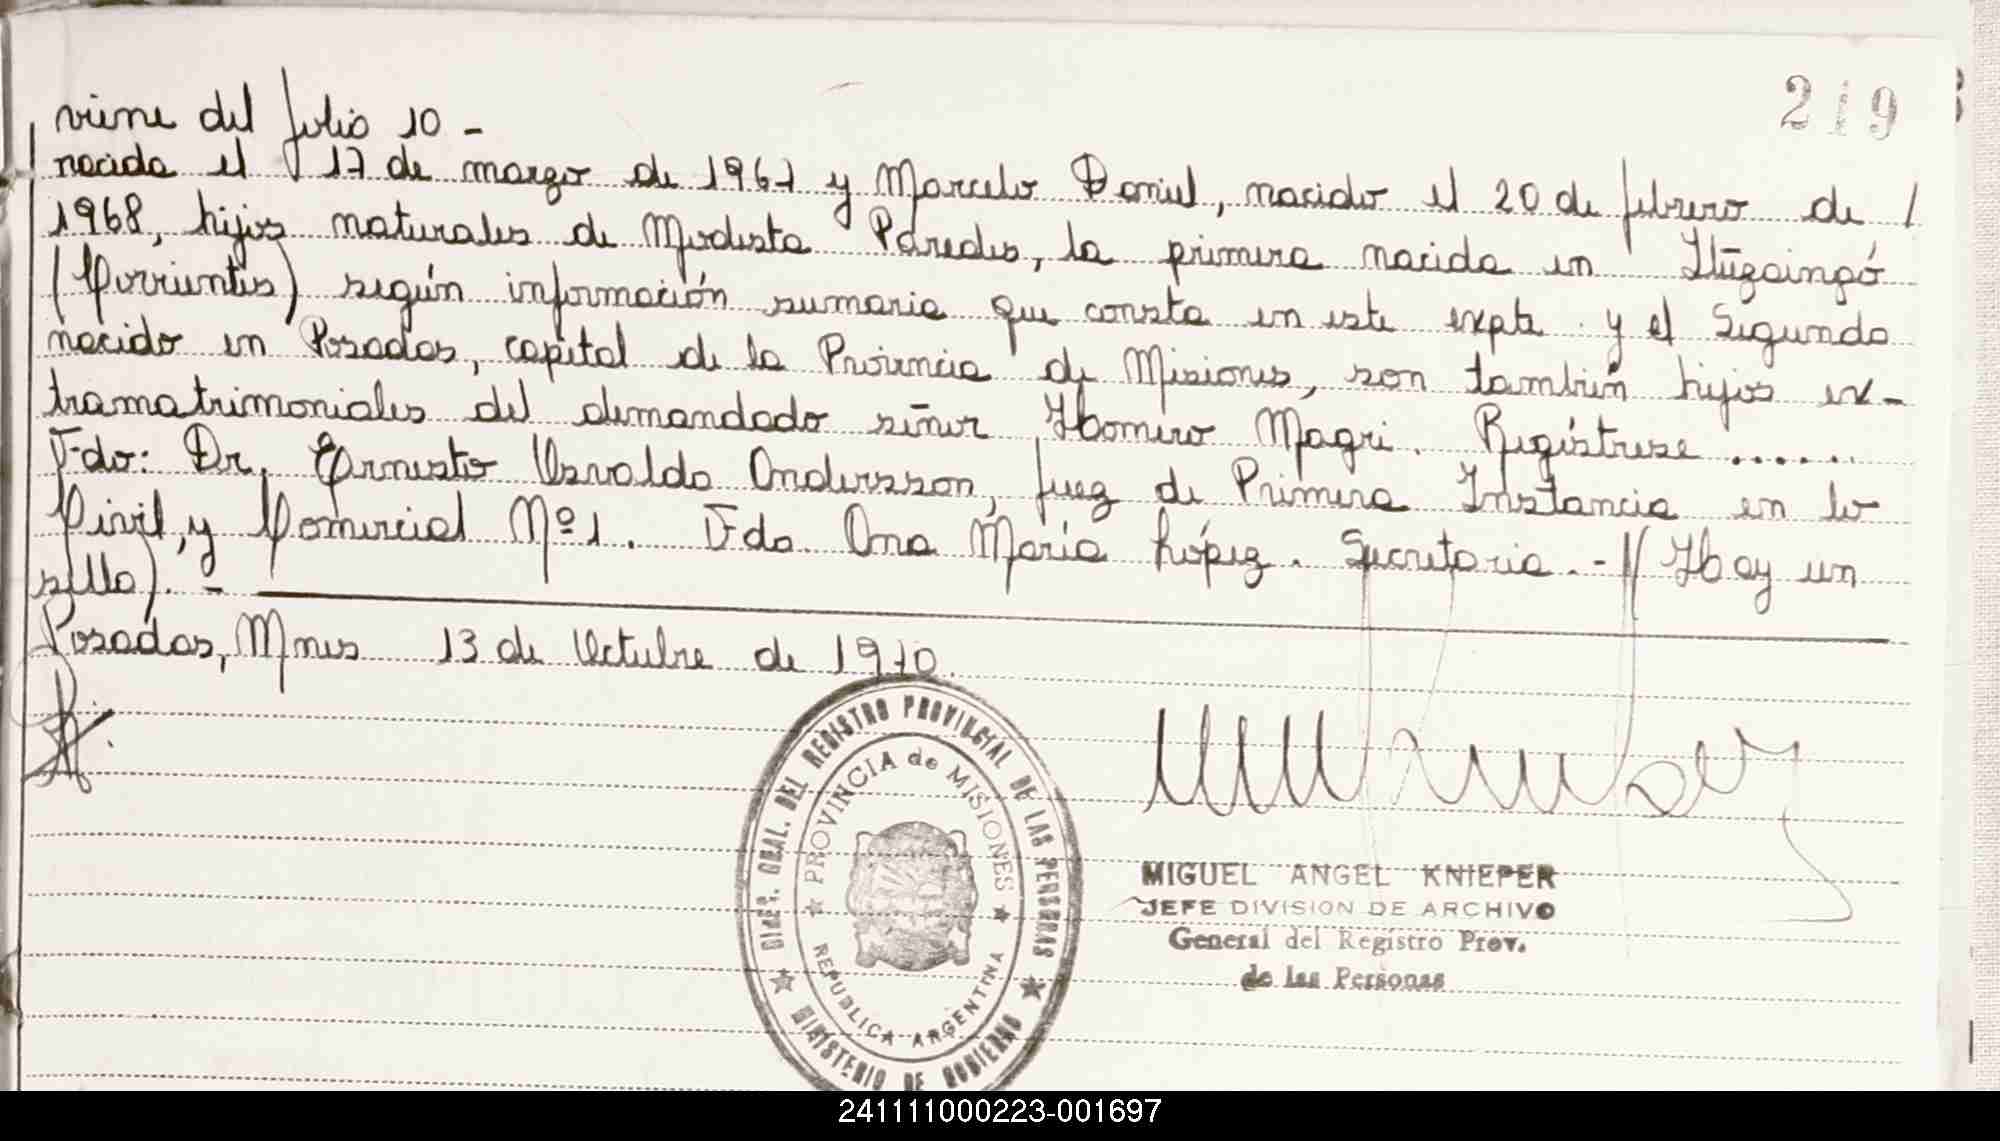 219
viene del folio 10 -
nacida el 17 de marzo de 1967 y Marcelo Daniel, nacido el 20 de febrero de /
1968, hijos naturales de Modesta Paredes, la primera nacida en Ituzaingó
(Corrientes) según información sumaria que consta en este expte. y el segundo
nacido en Posadas, capital de la Provincia de Misiones, son también hijos ex-
tramatrimoniales del demandado señor Homero Magri. Regístrese ......
Fdo: Dr. Ernesto Osvaldo Andersson, Juez de Primera Instancia en lo
Civil, y Comercial Nº 1. Fdo. Ana María López. Secretaria. -// (Hay un
sello). -
Posadas, Mnes 13 de Octubre de 1970.
DIREC. GRAL. DEL REGISTRO PROVINCIAL DE LAS PERSONAS
PROVINCIA de MISIONES
REPUBLICA ARGENTINA
MINISTERIO DE GOBIERNO
MIGUEL ANGEL KNIEPER
JEFE DIVISION DE ARCHIVO
General del Registro Prov.
de las Personas
241111000223-001697